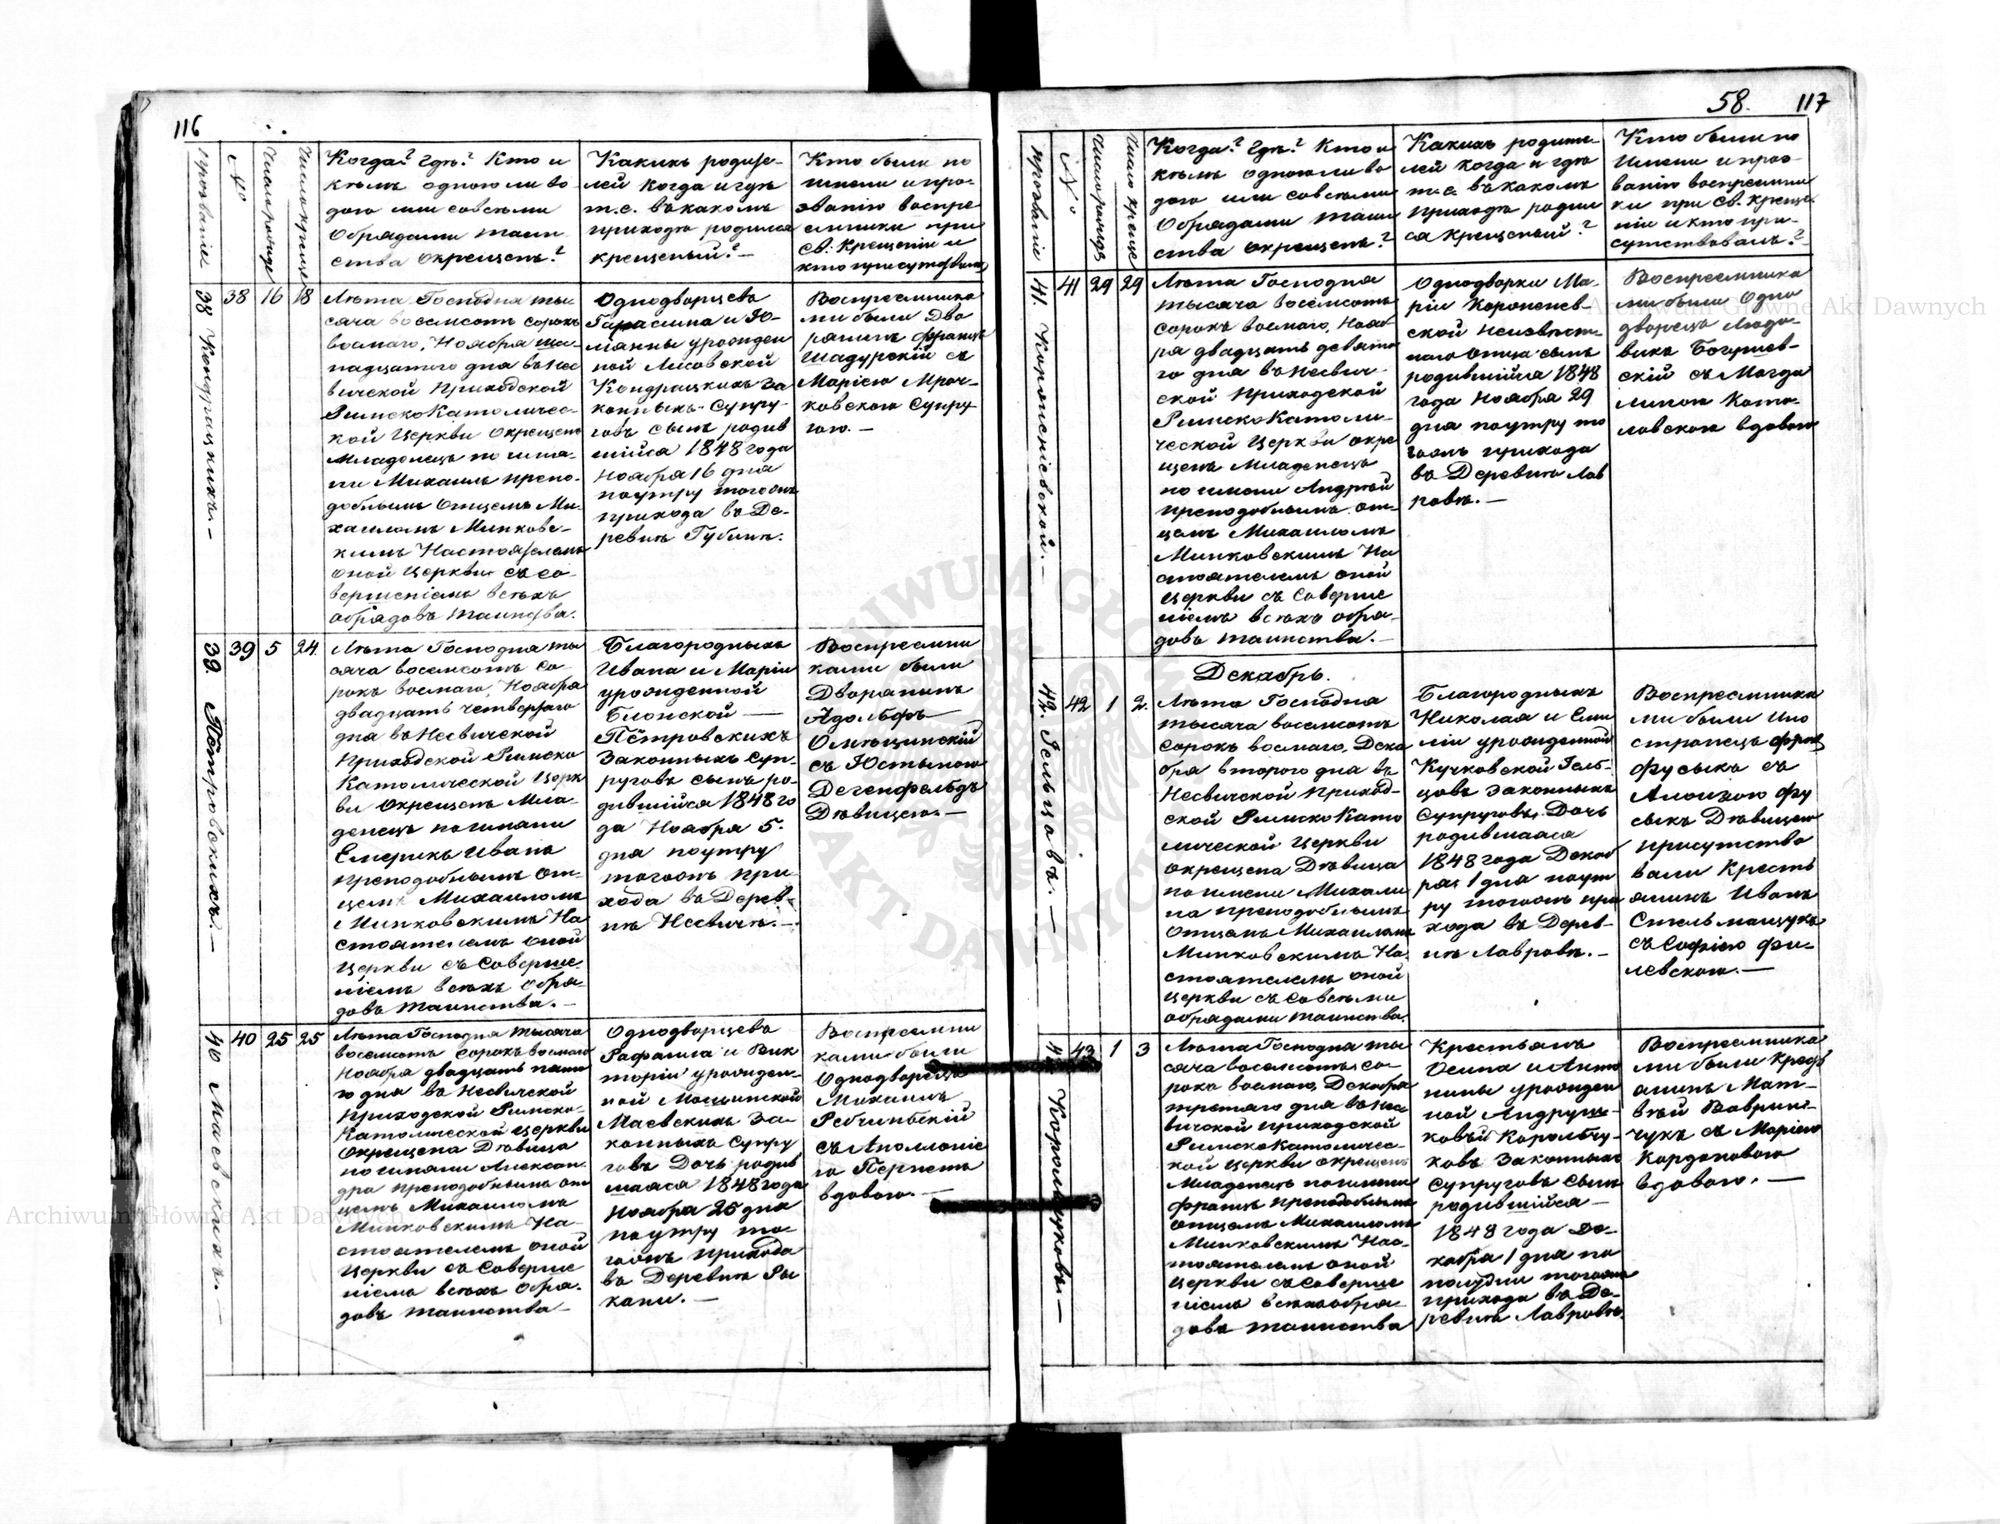 116
прозваніе
№
Число рожде
Число крещен
Когда? Гдѣ? Кто и
кѣмъ одною ли во
дою или совсѣми
Обрядами таин
ства Окрещенъ?
Какихъ родите
лей Когда и гдѣ
т.е. въ какомъ
приходѣ родился
крещеный? —
Кто были по
имени и про
званію воспре
емники при
Св. Крещеніи и
кто присутствовалъ
38 Кондрацкихъ. —
38
16
18
Лѣта Господня ты
сяча восемсотъ сорокъ
восмаго, Ноября ше
надцатого дня въ Нес
вичской Приходской
РимскоКатоличес
кой Церкви Окрещенъ
Младенецъ по име
ни Михаилъ препо
добнымъ Отцемъ Ми
хаиломъ Минковс
кимъ Настоятелемъ
оной Церкви съ со
вершеніемъ всѣхъ
обрядовъ таинства.
Однодворцевъ
Гарасима и Ю
лианны урожден
ной Лисовской
Кондрацкихъ За
конныхъ Супру
говъ сынъ родив
шійся 1848 года
Ноября 16 дня
поутру тогожъ
прихода въ Де
ревнѣ Губинѣ.
Воспреемника
ми были Дво
рянинъ Францъ
Шадурскій съ
Маріею Мроч
ковскою Супру
гою. —
39. Петровскихъ. —
39
5
24.
Лѣта Господня ты
сяча восемсотъ со
рокъ восмаго, Ноября
двадцать четвертаго
дня въ Несвичской
Приходской Римско
Католической Церк
ви Окрещенъ Мла
денецъ по имени
Емерикъ Иванъ
преподобнымъ От
цемъ Михаиломъ
Минковскимъ На
стоятелемъ оной
Церкви съ Соверше
ніемъ всѣхъ обря
довъ таинства. —
Благородныхъ
Ивана и Маріи
урожденной
Блонской —
Петровскихъ
Законныхъ Суп
руговъ сынъ ро
дившійся 1848 го
да Ноября 5.
дня поутру
тогожъ при
хода въ Дерев
нѣ Несвичѣ. —
Воспреемни
ками были
Дворянинъ
Адольфъ
Омѣцинскій
съ Юстыною
Дегенфельдъ
Дѣвицею. —
40 Маевскихъ. —
40
25
25
Лѣта Господня тысяча
восемсотъ сорокъ восмаго
Ноября двадцать пята
го дня въ Несвичской
Приходской Римско
Католической Церкви
Окрещена Дѣвица
по имени Алексан
дра преподобнымъ от
цемъ Михаиломъ
Минковскимъ На
стоятелемъ оной
Церкви съ Соверше
ніемъ всѣхъ обря
довъ таинства —
Однодворцевъ
Рафаила и Вик
торіи урожден
ной Мошинской
Маевскихъ За
конныхъ Супру
говъ Дочь родив
шаяся 1848 года
Ноября 25 дня
поутру то
гожъ прихода
въ Деревнѣ Ры
кани. —
Воспреемни
ками были
Однодворецъ
Михаилъ
съ Аполоніе
ю
вдовою. —
58.
117
прозваніе
№
Число рожде
Число креще
Когда? Гдѣ? Кто и
кѣмъ одною ли во
дою или совсѣми
Обрядами таин
ства Окрещенъ?
Какихъ родите
лей Когда и гдѣ
т.е. въ какомъ
приходѣ родил
ся крещеный?
Кто были по
имени и проз
ванію воспреемни
ки при Св. Креще
ніи и кто при
сутствовалъ? —
41. Коропсніевской. —
41
29
29
Лѣта Господня
тысяча восемсотъ
сорокъ восмаго, Нояб
ря двадцать девята
го дня въ Несвич
ской Приходской
РимскоКатоли
ческой Церкви окре
щенъ Младенецъ
по имени Андрей
преподобнымъ от
цемъ Михаиломъ
Минковскимъ На
стоятелемъ оной
Церкви съ Соверше
ніемъ всѣхъ обря
довъ таинства. —
Однодворки Ма
ріи Коропснев
ской Неизвѣст
наго Отца сынъ
родившійся 1848
года Ноября 29
дня поутру то
гожъ прихода
въ Деревнѣ Лав
ровѣ. —
Воспреемника
ми были Одно
дворецъ Людо
викъ Богушев
скій съ Магда
линою
вдовою
Декабрь.
42. Гельцовъ. —
42
1
2.
Лѣта Господня
тысяча восемсотъ
Сорокъ восмаго, Дека
бря второго дня въ
Несвичской Приход
ской РимскоКато
лической Церкви
окрещена Дѣвица
по имени Михали
на преподобнымъ
Отцемъ Михаиломъ
Минковскимъ На
стоятелемъ оной
Церкви съ Совсѣми
обрядами таинства.
Благородныхъ
Николая и Еми
ліи урожденной
Кучковской Гель
цовъ Законныхъ
Супруговъ, Дочь
родившаяся
1848 года Декаб
ря 1 дня поут
ру тогожъ при
хода въ Дерев
нѣ Лавровѣ. —
Воспреемника
ми были Ино
странецъ Франц
Фусыкъ съ
Алоизою Фу
сыкъ Дѣвицею
присутство
вали Кресть
янинъ Иванъ
Стельмащукъ
съ Софіею Фи
левскою. —
Корольчуковъ. —
43
1
3
Лѣта Господня ты
сяча восемсотъ со
рокъ восмаго, Декабря
третяго дня въ Нес
вичской приходской
РимскоКатоличес
кой Церкви окрещенъ
Младенецъ по имени
Францъ преподобнымъ
отцемъ Михаиломъ
Минковскимъ Нас
тоятелемъ оной
Церкви съ Соверше
ніемъ всѣхъ обря
довъ таинства
Крестьянъ
Осипа и Анто
нины урожден
ной Андрущу
ковъ Корольчу
ковъ Законныхъ
Супруговъ сынъ
родившійся —
1848 года Де
кабря 1 дня по
полудни тогожъ
прихода въ Де
ревнѣ Лавровѣ.
Воспреемника
ми были Крест
янинъ Мат
вѣй Ваврин
чукъ съ Маріею
Кордоновою
вдовою. —
Archiwum Główne Akt Dawnych
Archiwum Główne Akt Dawnych
ARCHIWUM GŁÓWNE AKT DAWNYCH